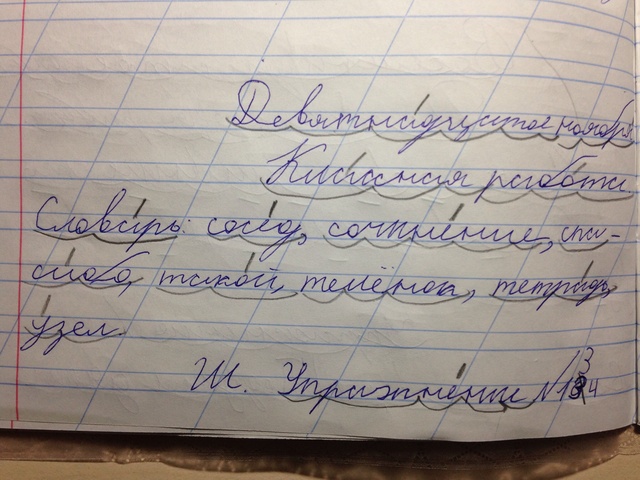 Девятнадцатое ноября
Классная работа
Словарь: сосед, сочинение, спа-
сибо, такой, телёнок, тетрадь,
узел.
III. Упражнение №134